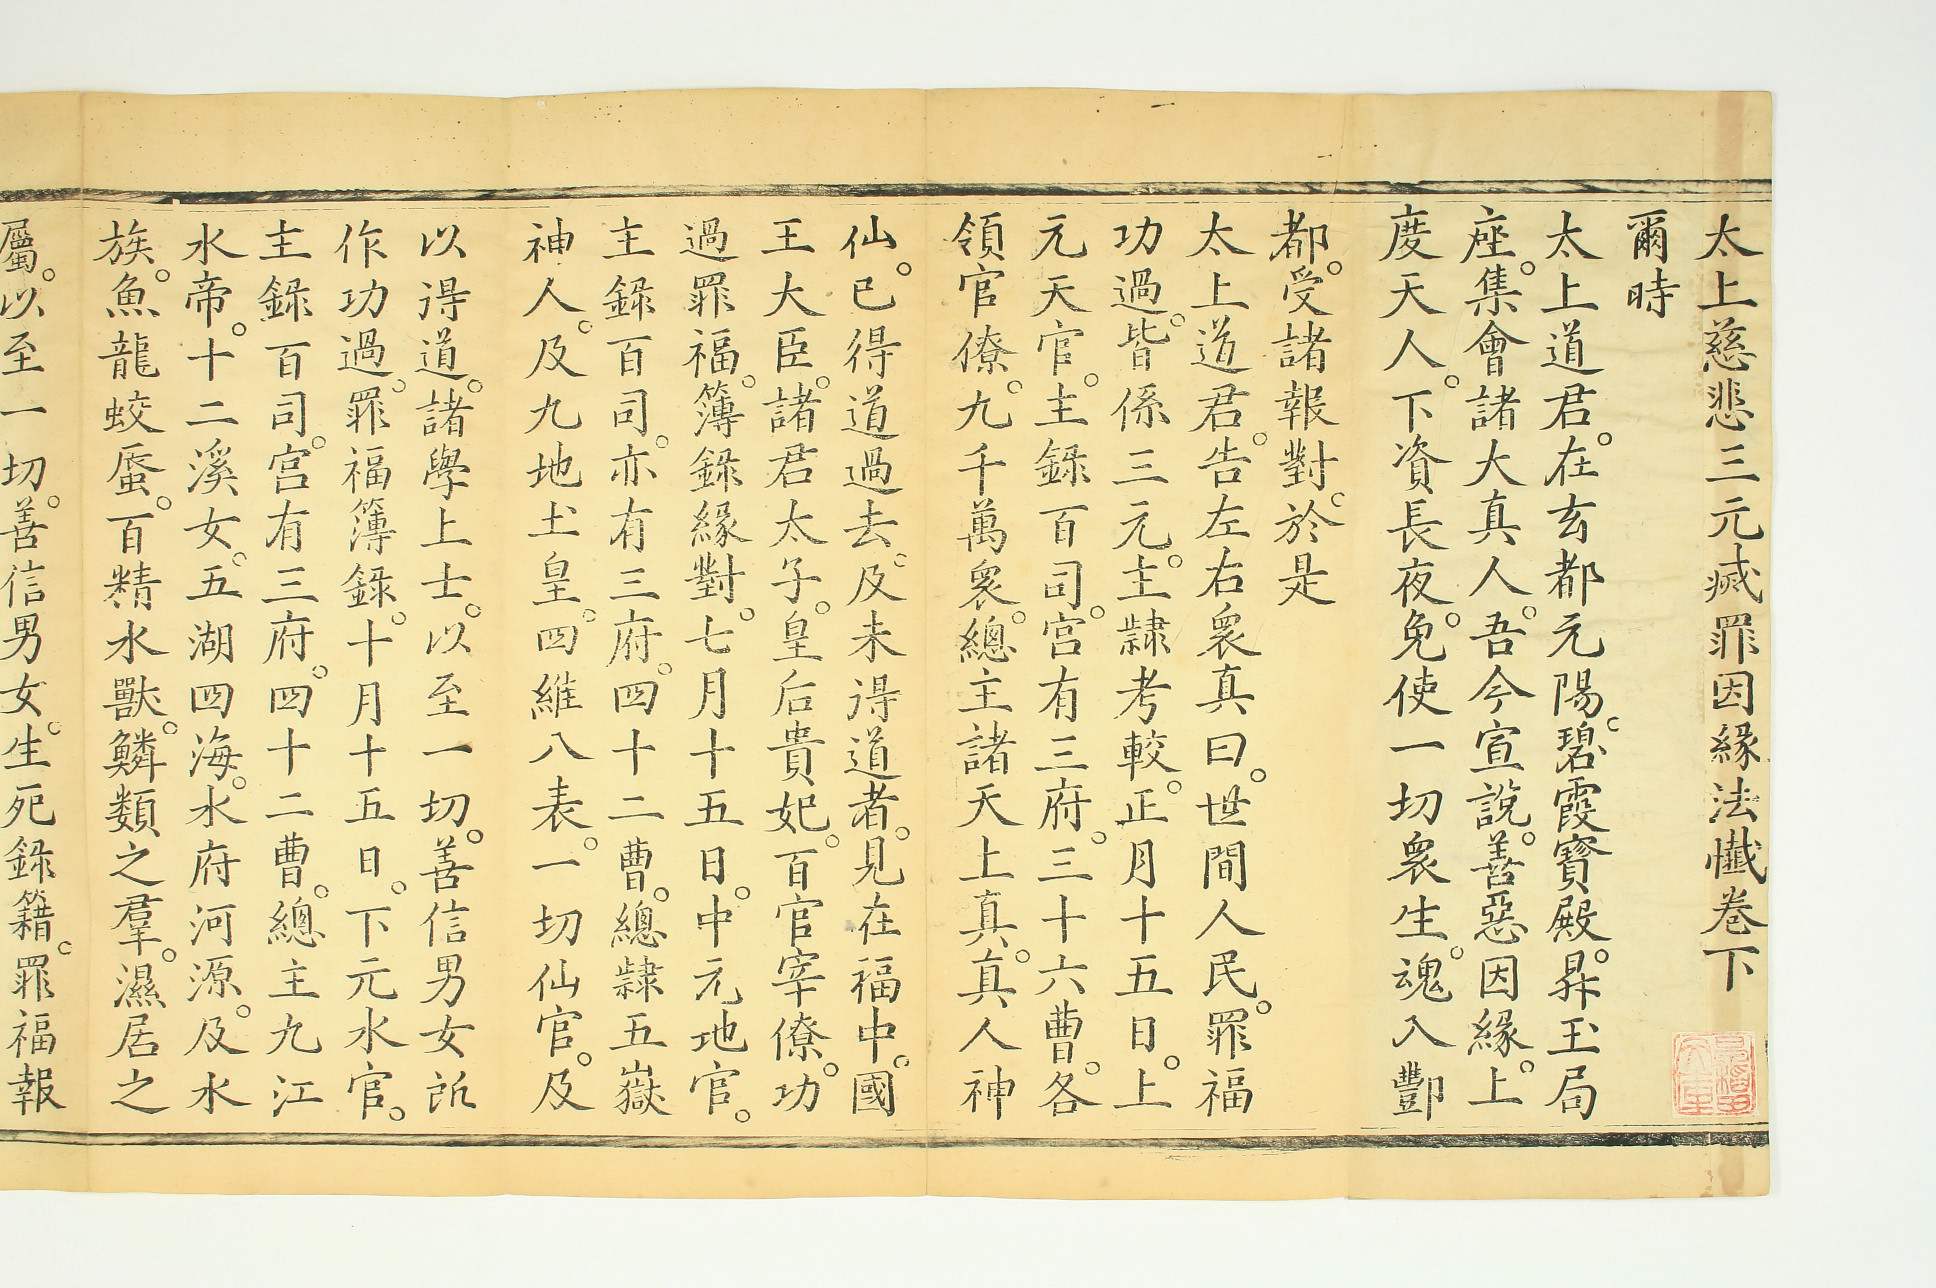 太上慈悲三元滅罪因緣法懺卷下
爾時
太上道君。在玄都元陽。碧霞寶殿。昇玉局
座。集會諸大真人。吾今宣說。善惡因緣。上
度天人。下資長夜。免使一切衆生。魂入酆
都。受諸報對。於是
太上道君。告左右衆真曰。世間人民。罪福
功過。皆係三元。主隸考較。正月十五日。上
元天官。主錄百司。宮有三府。三十六曹。各
領官僚。九千萬衆。總主諸天上真。真人神
仙。已得道過去。及未得道者。見在福中。國
王大臣。諸君太子。皇后貴妃。百官宰僚。功
過罪福。簿錄緣對。七月十五日。中元地官。
主錄百司。亦有三府。四十二曹。總隸五嶽
神人。及九地土皇。四維八表。一切仙官。及
以得道。諸學上士。以至一切。善信男女所
作功過。罪福簿錄。十月十五日。下元水官。
主錄百司。宮有三府。四十二曹。總主九江
水帝。十二溪女。五湖四海。水府河源。及水
族。魚龍蛟蜃。百精水獸。鱗類之羣。濕居之
屬。以至一切。善信男女。生死錄籍。罪福報